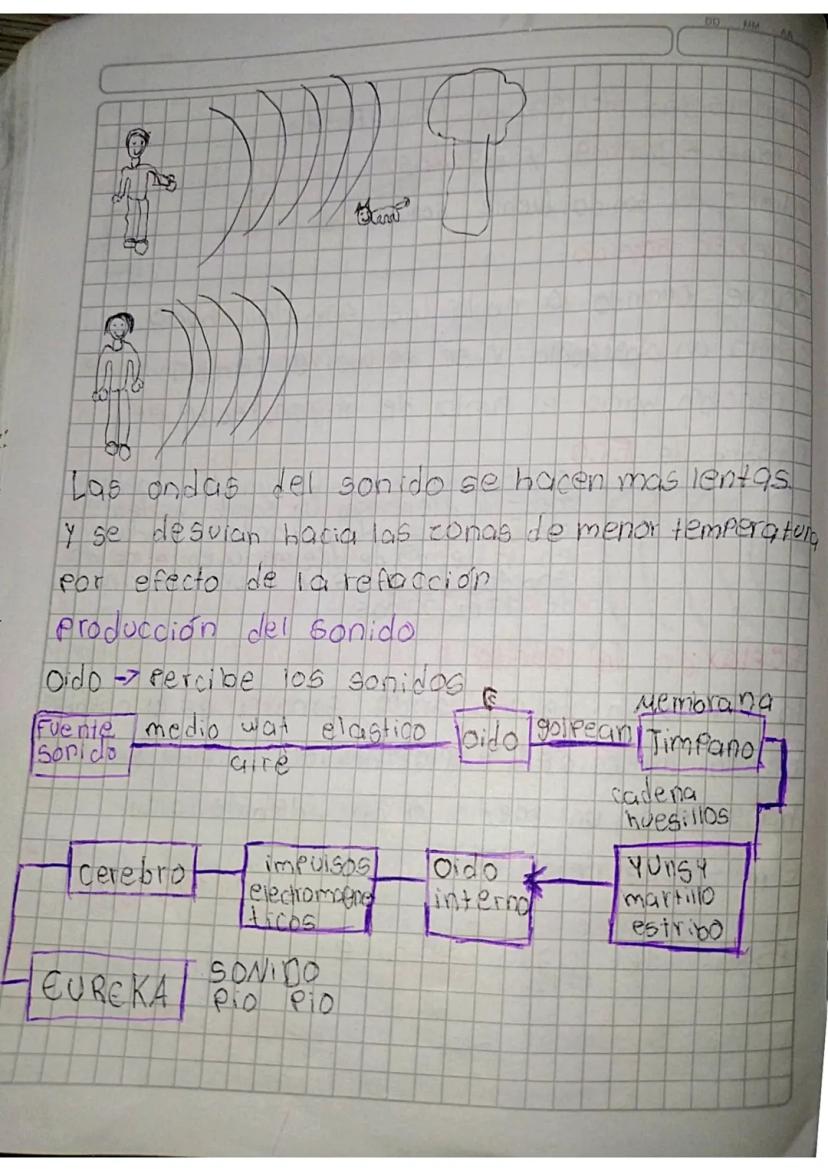 DD MM AA
Las ondas del sonido se hacen mas lentas
y se desvian hacia las zonas de menor temperatura
por efecto de la refracción
Producción del sonido
Oido → Percibe los sonidos
Fuente
sonido
medio wat elastico
aire
oido
golpean
Membrana
Timpano
cadena
huesillos
YUnsy
martillo
estribo
Oido
interno
impulsos
electromagne
ticos
cerebro
EUREKA
SONIDO
Pio Pio